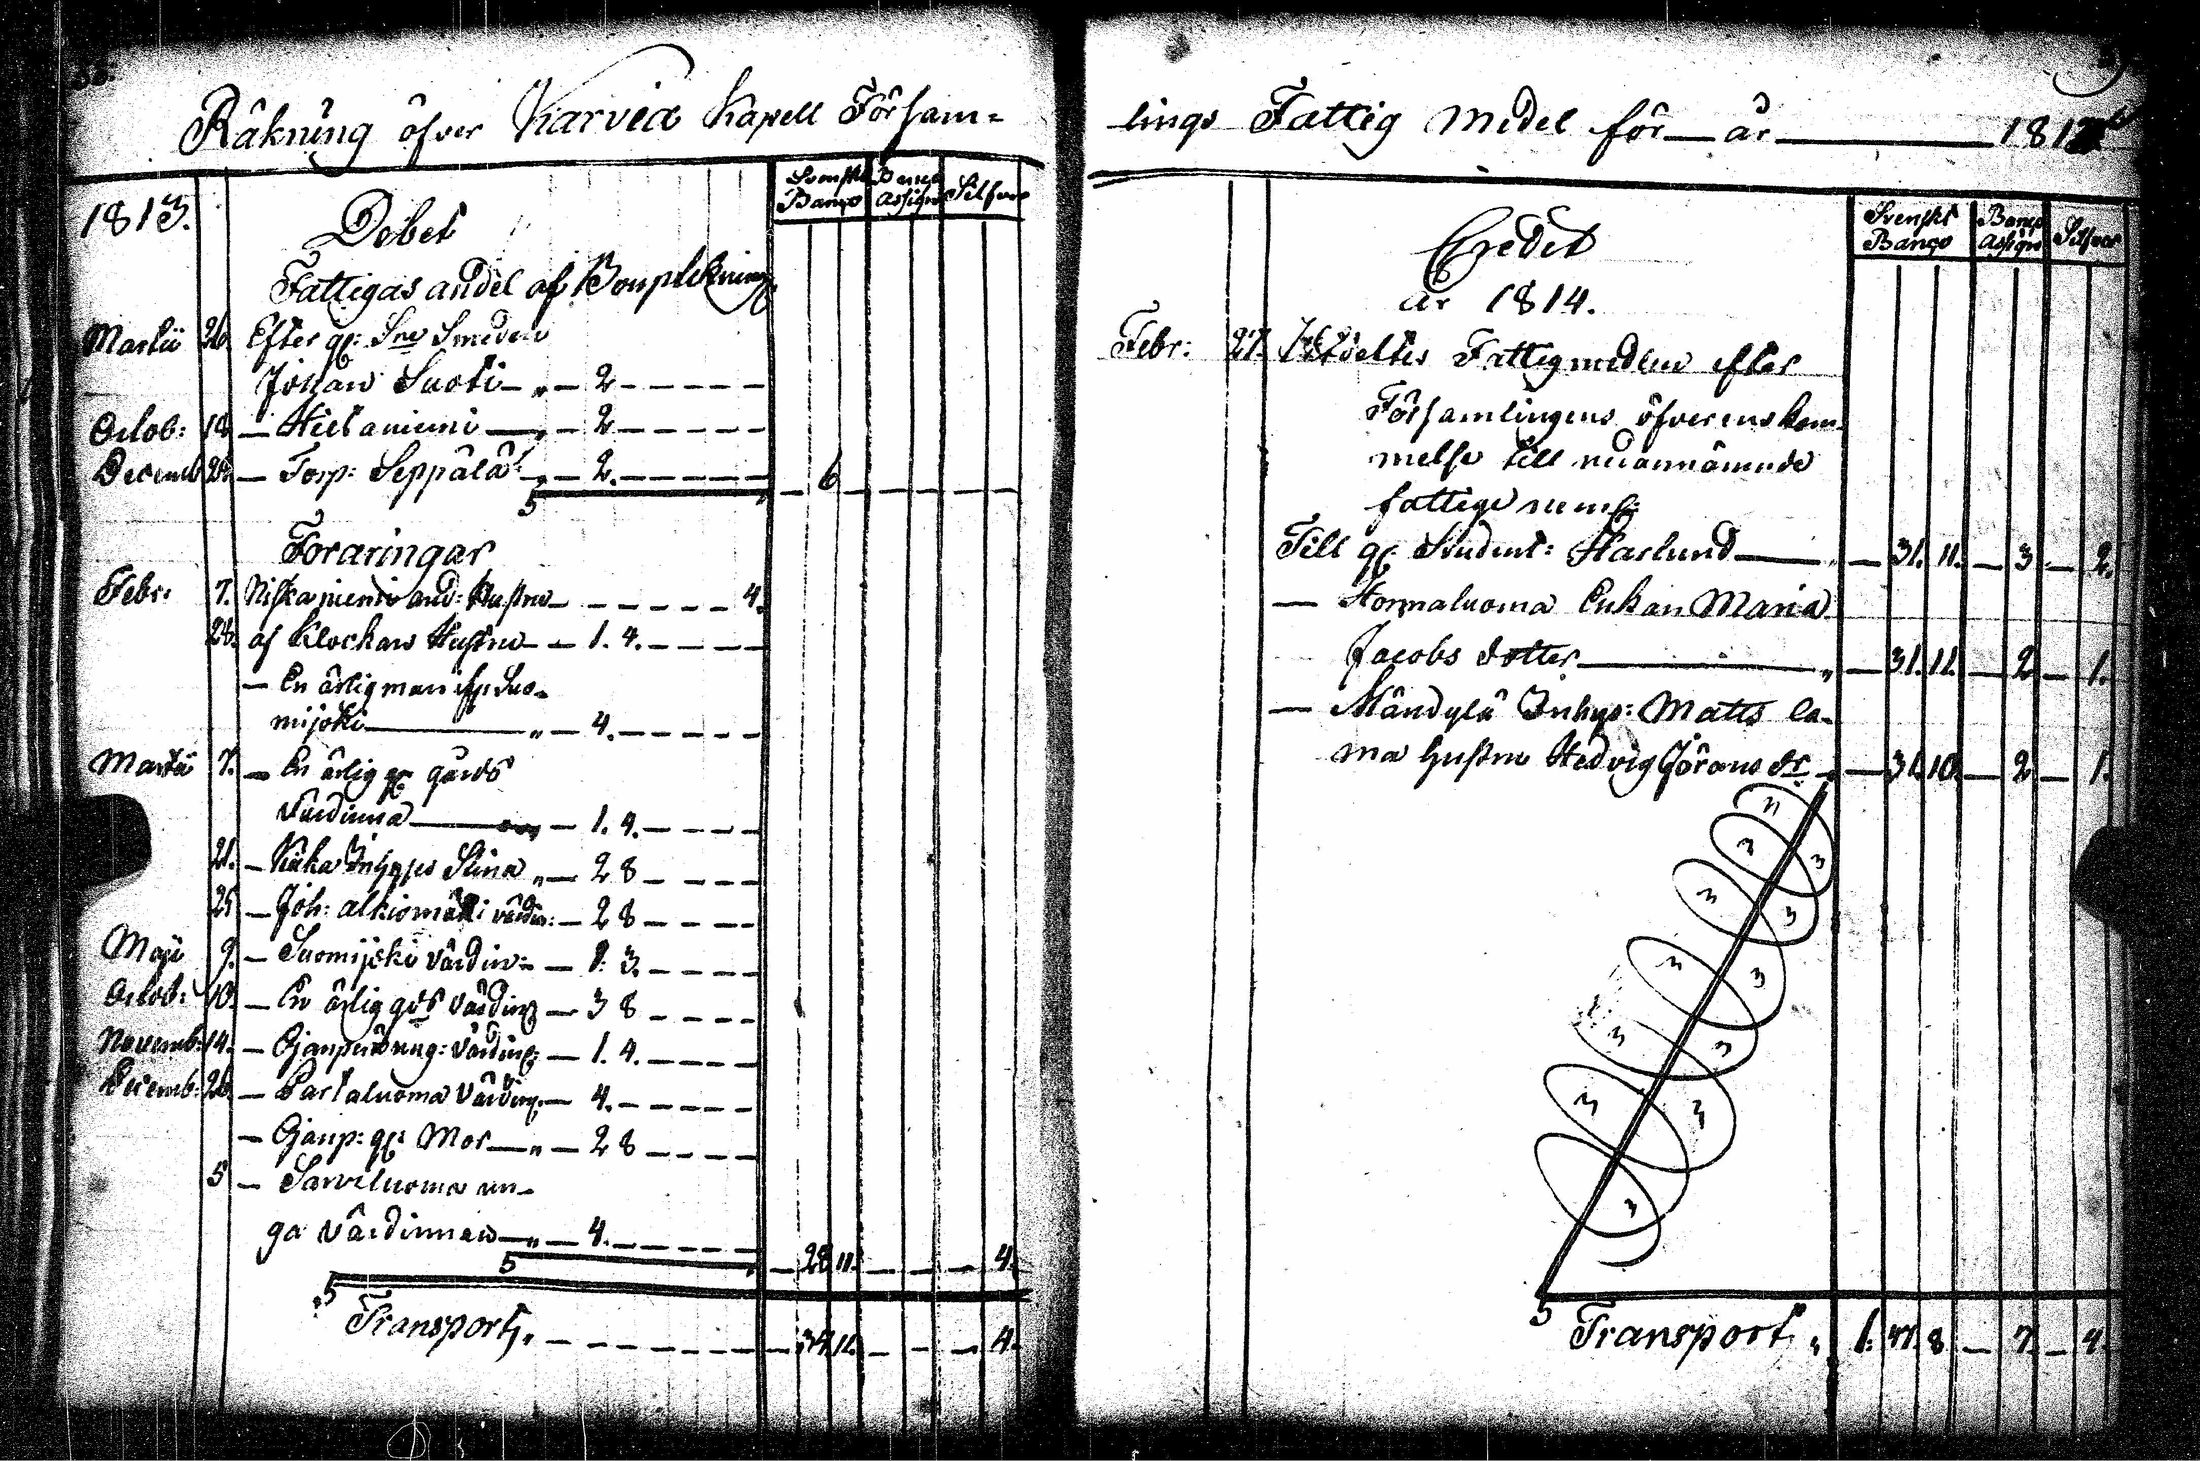 Räkning öfver Karvia Kapell Församlings Fattig Medel för år 1813
1813.
Debet
Svenskt Banco
Banco Assign
Silfver
Fattigas andel af
Martii 26. Efter Sne Smeden
Johan Suoti „ 2
Octob: 18 Hietaniemi „ 2
Decemb 26. Torp: Seppälä „ 2. 6
Foraringar
Febr: 7. Niskaniemi and: Hustru 4.
28. af Klockars Hustru 1. 4.
En ärlig man Suo-
mijoki „ 4.
Martii 7. En ärlig gårds
Värdinna 1. 4.
21. Kiika Inhyses Stina „ 2 8
25 Joh: alkiomäki värdin: 2 8
Maji 9. Suomijoki Värdin: 1. 3.
Octob: 10. En ärlig gds Värdin: 3 8
Novemb: 14. Ojanperä ung: Värdin: 1. 4.
Decemb: 26. Partaluoma Värdin: 4.
Ojanp: Mor „ 2 8
5 Sarveluoma un-
ga Värdinnan „ 4. 28 11. 4.
Transport „ 34 11. 4.
Credit
Svenskt Banco
Banco Assign
Silfver
år 1814.
Febr: 27. Fattigmedlen efter
Församlingens öfverenskom-
melse till nedannämnde
fattige neml:
Till Student: Haslund 31. 11. 3. 2.
Hormaluoma Enkan Maria
Jacobs dotter „ 31. 11. 2 1.
Mändylä Inhys: Matts La-
ma hustru Hedvig Jörans dr 31. 10. 2 1.
Transport „ 1. 47. 8. 7. 4.